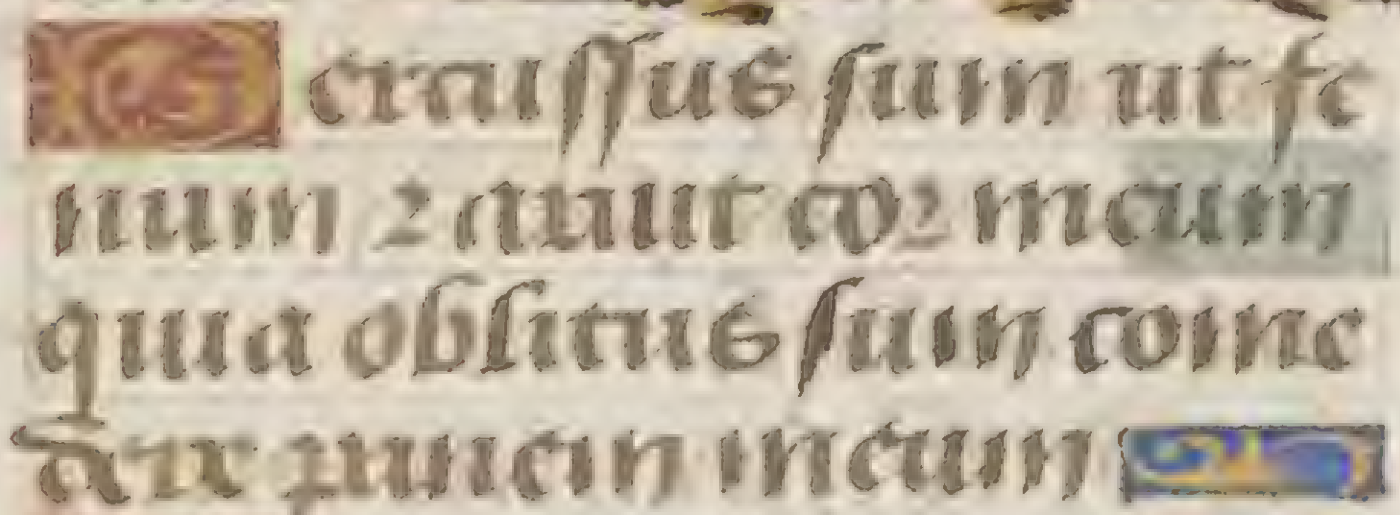 Percussus sum ut fe
num ⁊ aruit cor meum
quia oblitus sum come
dere panem meum